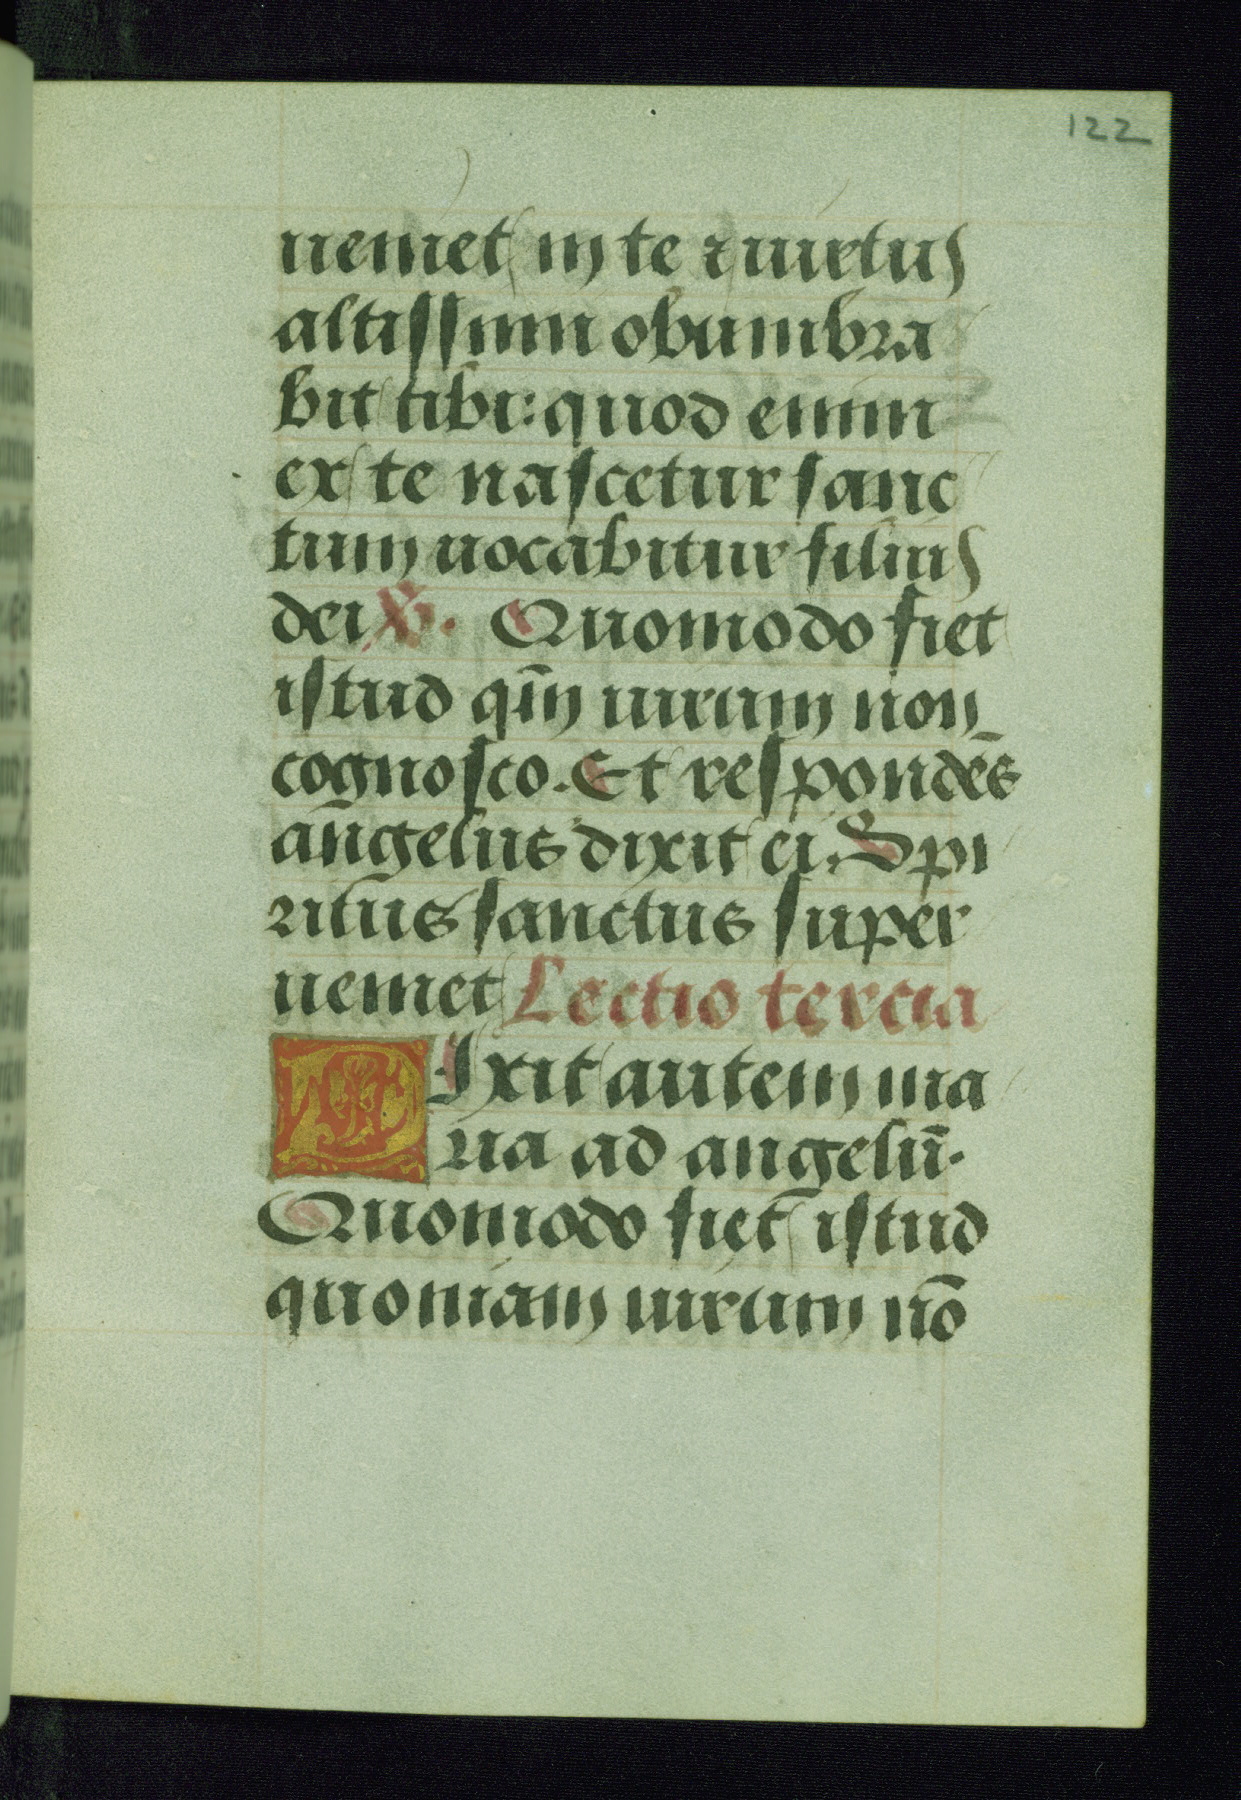 122
ueniet in te ⁊ uirtus
altissimi obumbra
bit tibi: quod enim
ex te nascetur sanc
tum uocabitur filius
dei ℣. Quomodo fiet
istud qm̄ uirum non
cognosco. Et respondēs
angelus dixit ei. Spi
ritus sanctus super
ueniet Lectio tercia
DIxit autem ma
ria ad angelū.
Quomodo fiet istud
quoniam uirum nō